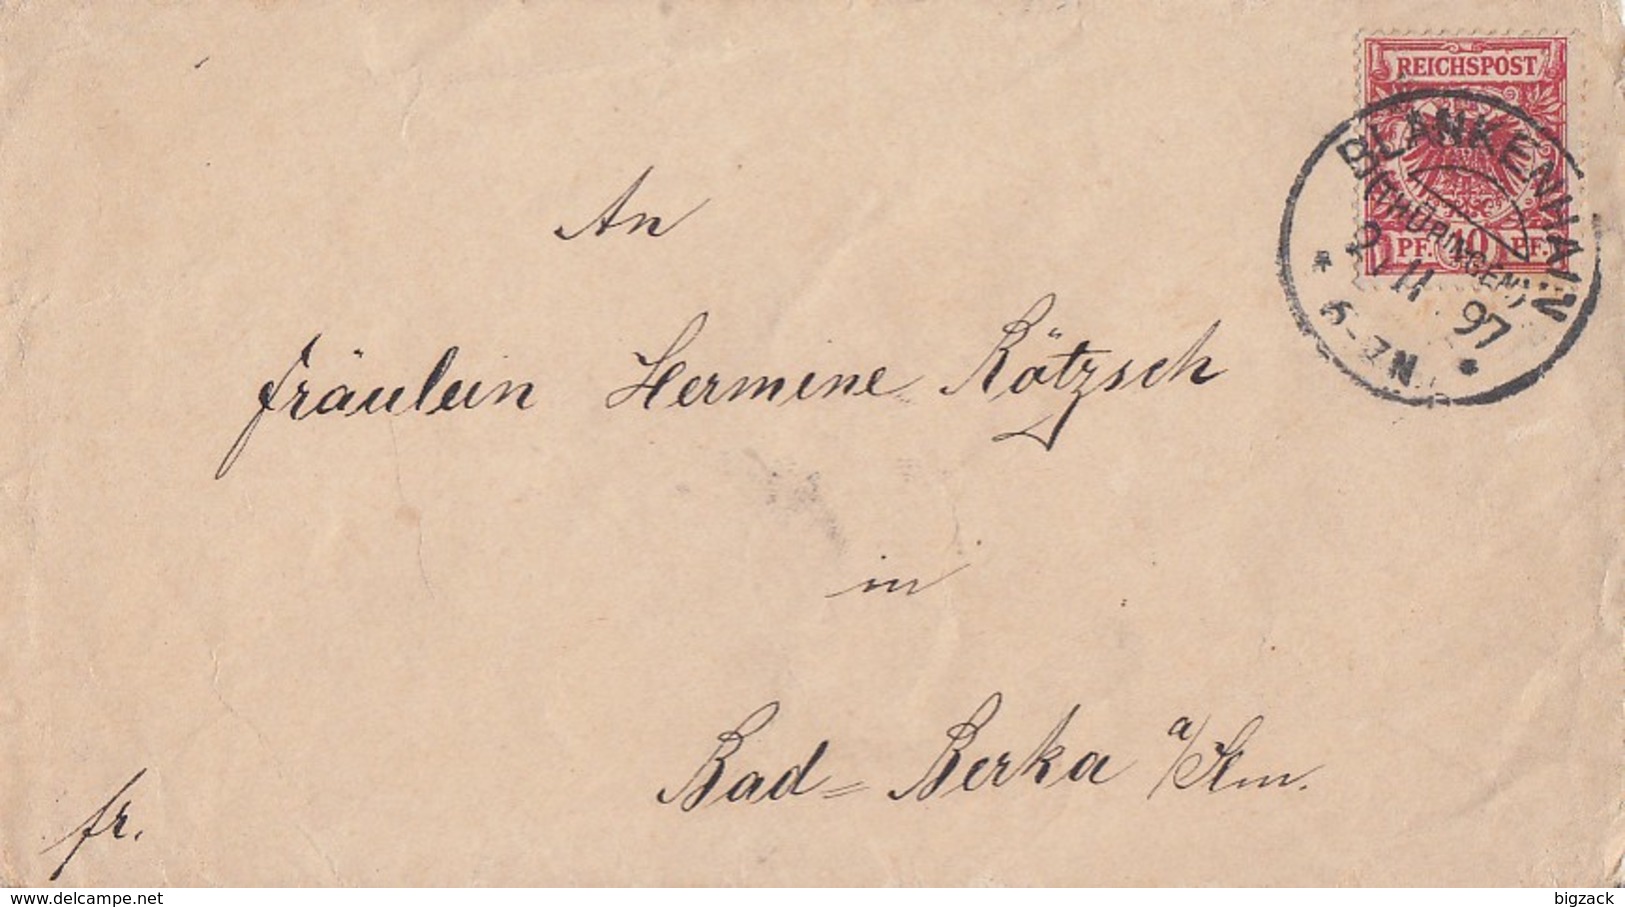 REICHSPOST
PF. 10 PF.
BLANKENHAIN
(THÜRINGEN)
11 97
* 6-7N. *
An
Fräulein Hermine Rötzsch
in
Bad=Berka a/Ilm.
fr.
delcampe.net
bigzack